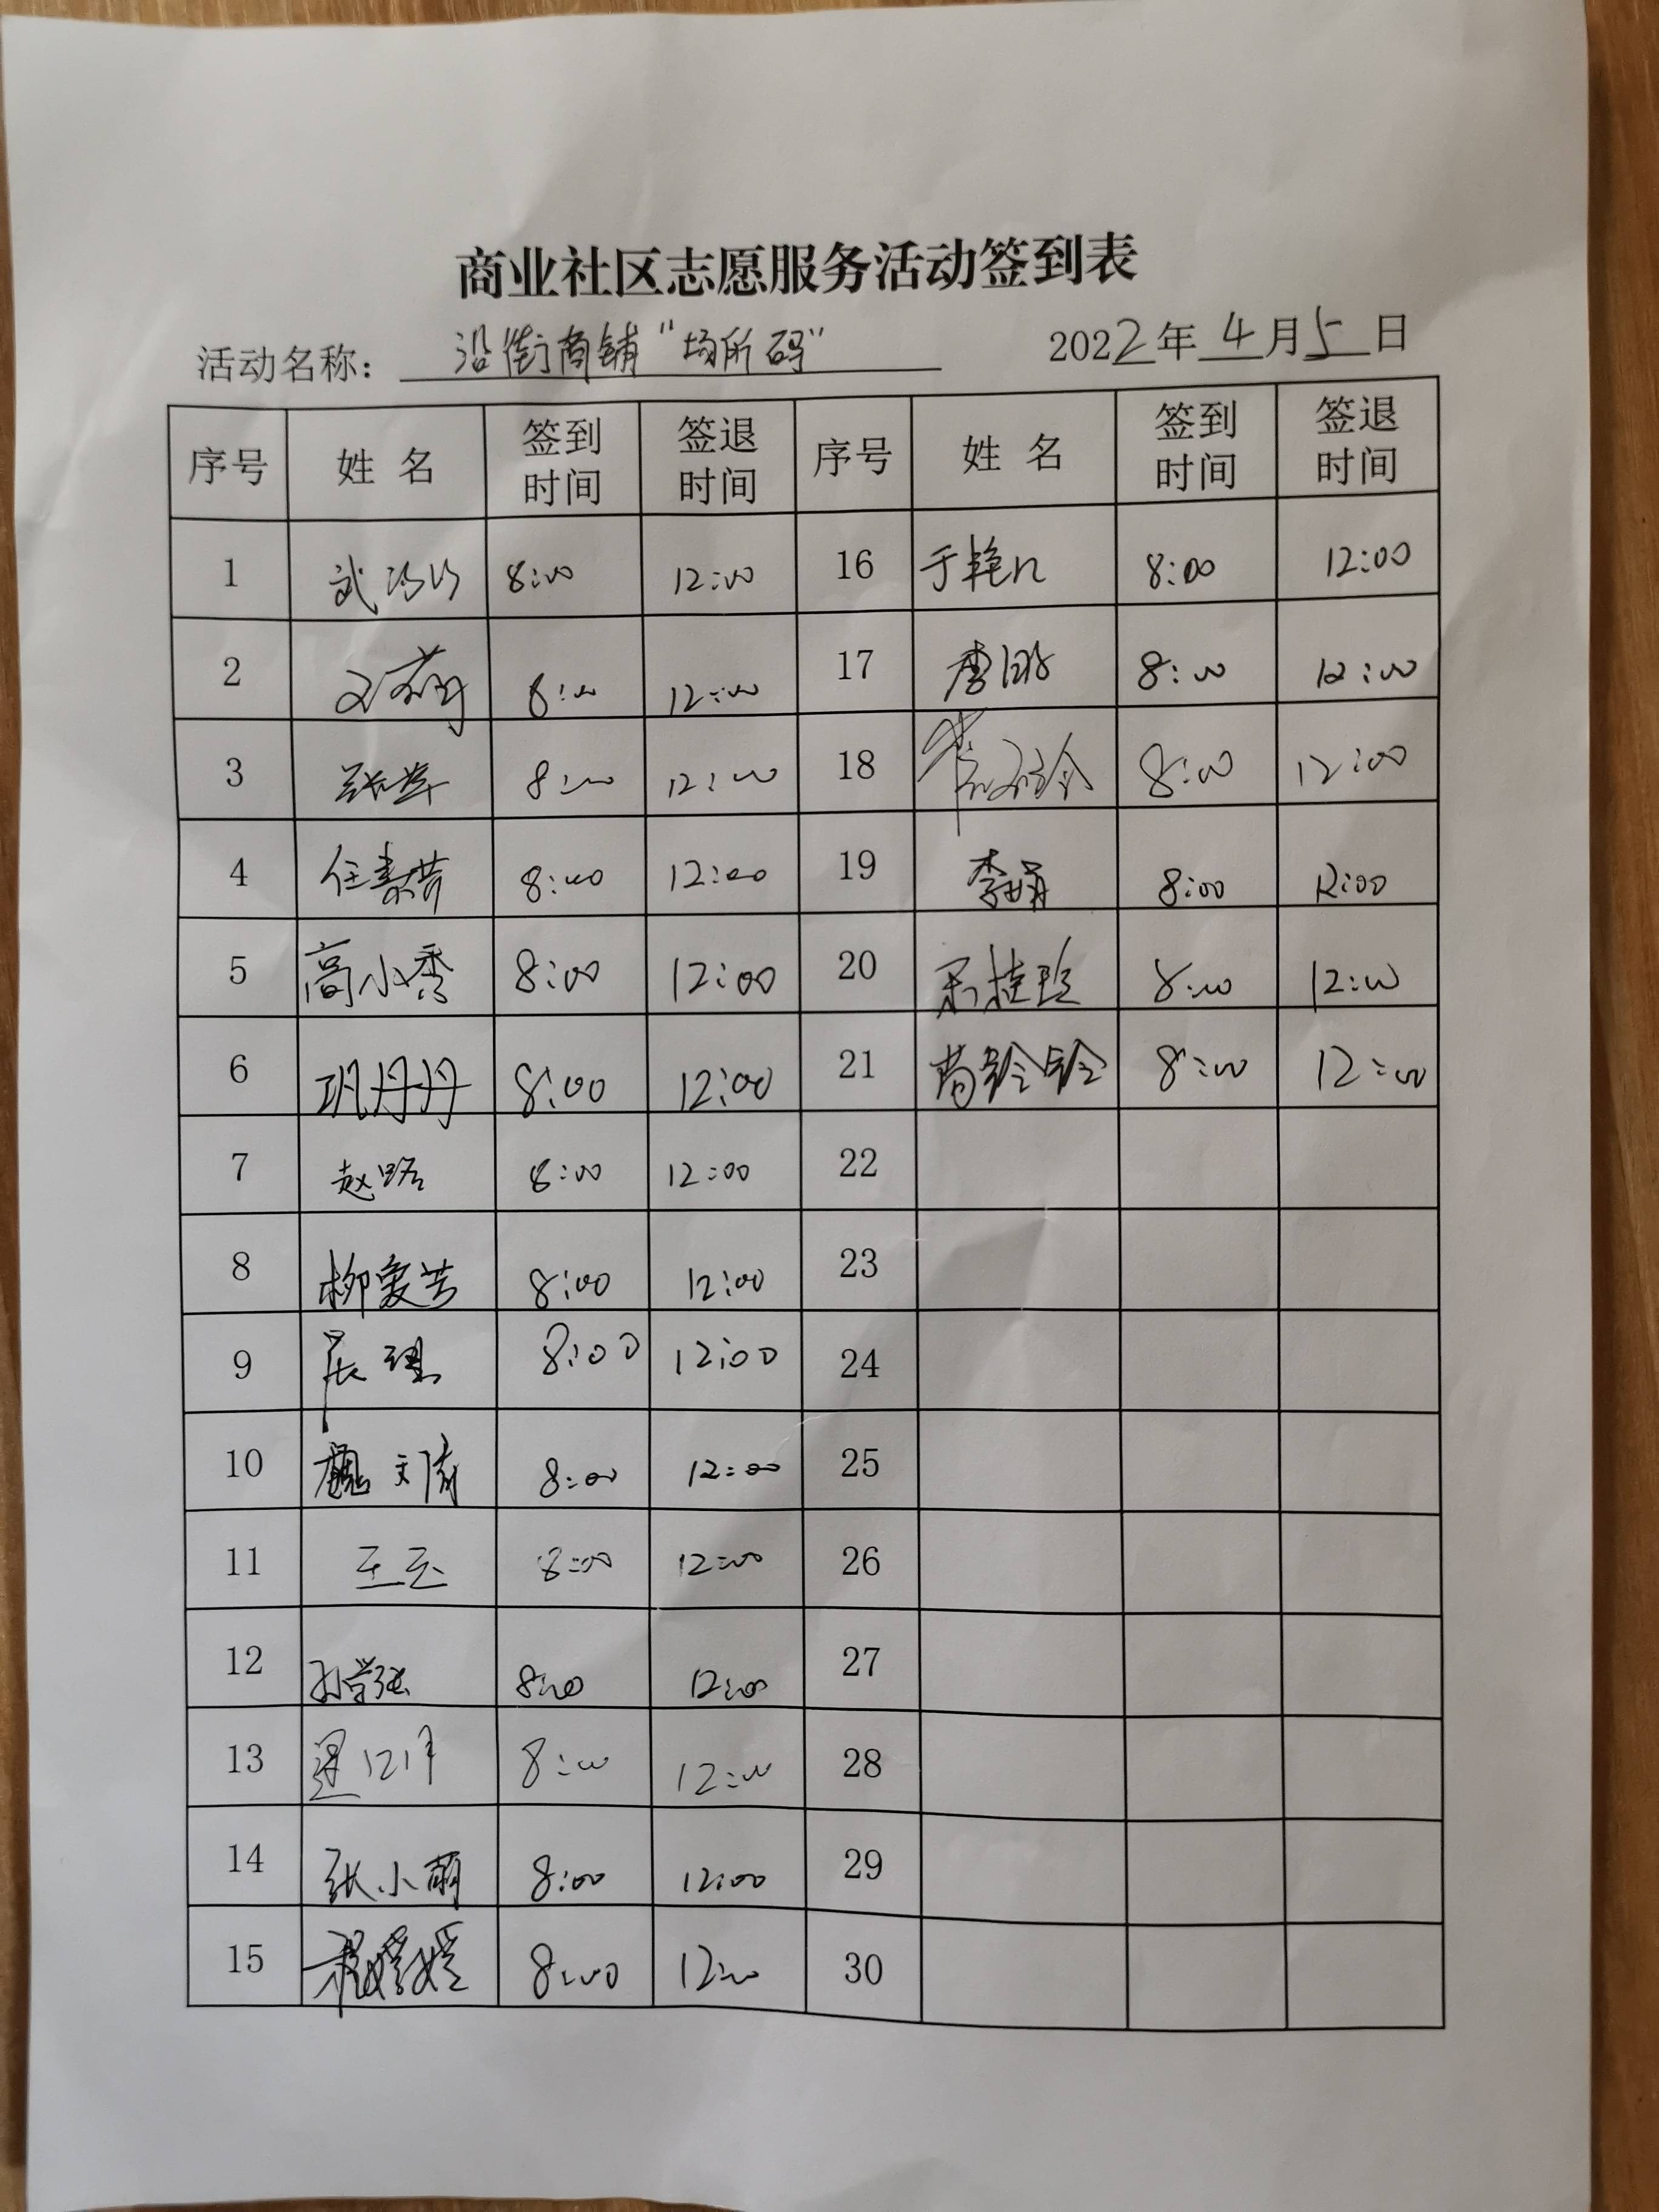 商业社区志愿服务活动签到表
活动名称： 沿街商铺“场所码” 2022年 4月5日
序号 姓 名 签到时间 签退时间 序号 姓 名 签到时间 签退时间
1 武 8:00 12:00 16 于艳 8:00 12:00
2 8:00 12:00 17 李 8:00 12:00
3 张 8:00 12:00 18 8:00 12:00
4 任素芳 8:00 12:00 19 李娟 8:00 12:00
5 高小秀 8:00 12:00 20 桂 8:00 12:00
6 巩丹丹 8:00 12:00 21 铃铃 8:00 12:00
7 赵路 8:00 12:00 22
8 柳爱芳 8:00 12:00 23
9 8:00 12:00 24
10 魏文倩 8:00 12:00 25
11 王玉 8:00 12:00 26
12 孙学 8:00 12:00 27
13 8:00 12:00 28
14 张小萌 8:00 12:00 29
15 程媛媛 8:00 12:00 30